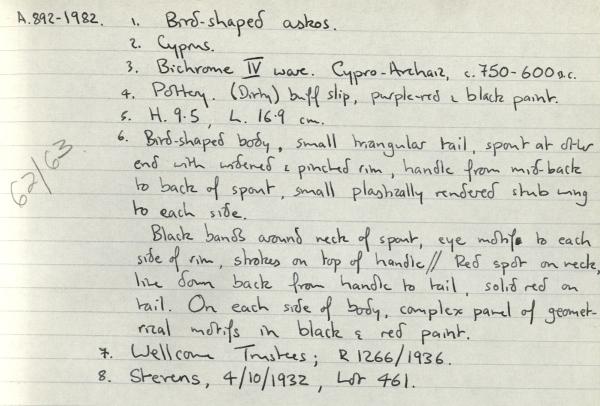 A.892-1982. 1. Bird-shaped askos.
2. Cyprus.
3. Bichrome IV ware. Cypro-Archaic, c.750-600 B.C.
4. Pottery. (Dirty) buff slip, purple-red & black paint.
5. H. 9.5, L. 16.9 cm.
6. Bird-shaped body, small triangular tail, spout at other
end with widened & pinched rim, handle from mid-back
to back of spout, small plastically rendered stub wing
to each side.
Black bands around neck of spout, eye motifs to each
side of rim, strokes on top of handle// Red spot on neck,
line down back from handle to tail, solid red on
tail. On each side of body, complex panel of geomet-
rical motifs in black & red paint.
7. Wellcome Trustees; R 1266/1936.
8. Stevens, 4/10/1932, Lot 461.
62/63